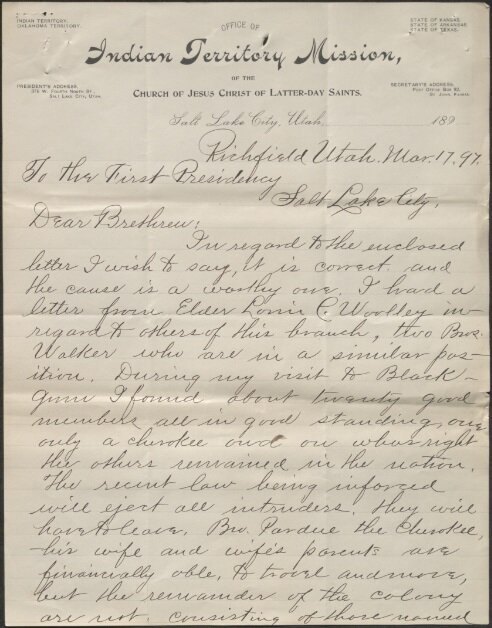 INDIAN TERRITORY.
OKLAHOMA TERRITORY.
OFFICE OF
STATE OF KANSAS.
STATE OF ARKANSAS.
STATE OF TEXAS.
Indian Territory Mission,
OF THE
CHURCH OF JESUS CHRIST OF LATTER-DAY SAINTS.
PRESIDENT'S ADDRESS.
376 W. FOURTH NORTH ST.
SALT LAKE CITY, UTAH.
SECRETARY'S ADDRESS.
POST OFFICE BOX 92.
ST. JOHN, KANSAS.
Salt Lake City, Utah, 189
Richfield Utah. Mar. 17. 97.
To the First Presidency
Salt Lake City.
Dear Brethren;
In regard to the enclosed
letter I wish to say, it is correct and
the cause is a worthy one. I had a
letter from Elder Lorin C. Woolley in-
regard to others of this branch, two Bros.
Walker who are in a similar pos-
ition. During my visit to Black-
gum I found about twenty good
members all in good standing, one
only a cherokee and on whos right
the others remained in the nation.
The recent law being inforced
will eject all intruders. they will
have to leave. Bro. Pardue the Cherokee,
his wife and wife's parents are
financially able, to travel and move,
but the remainder of the colony
are not. consisting of those named